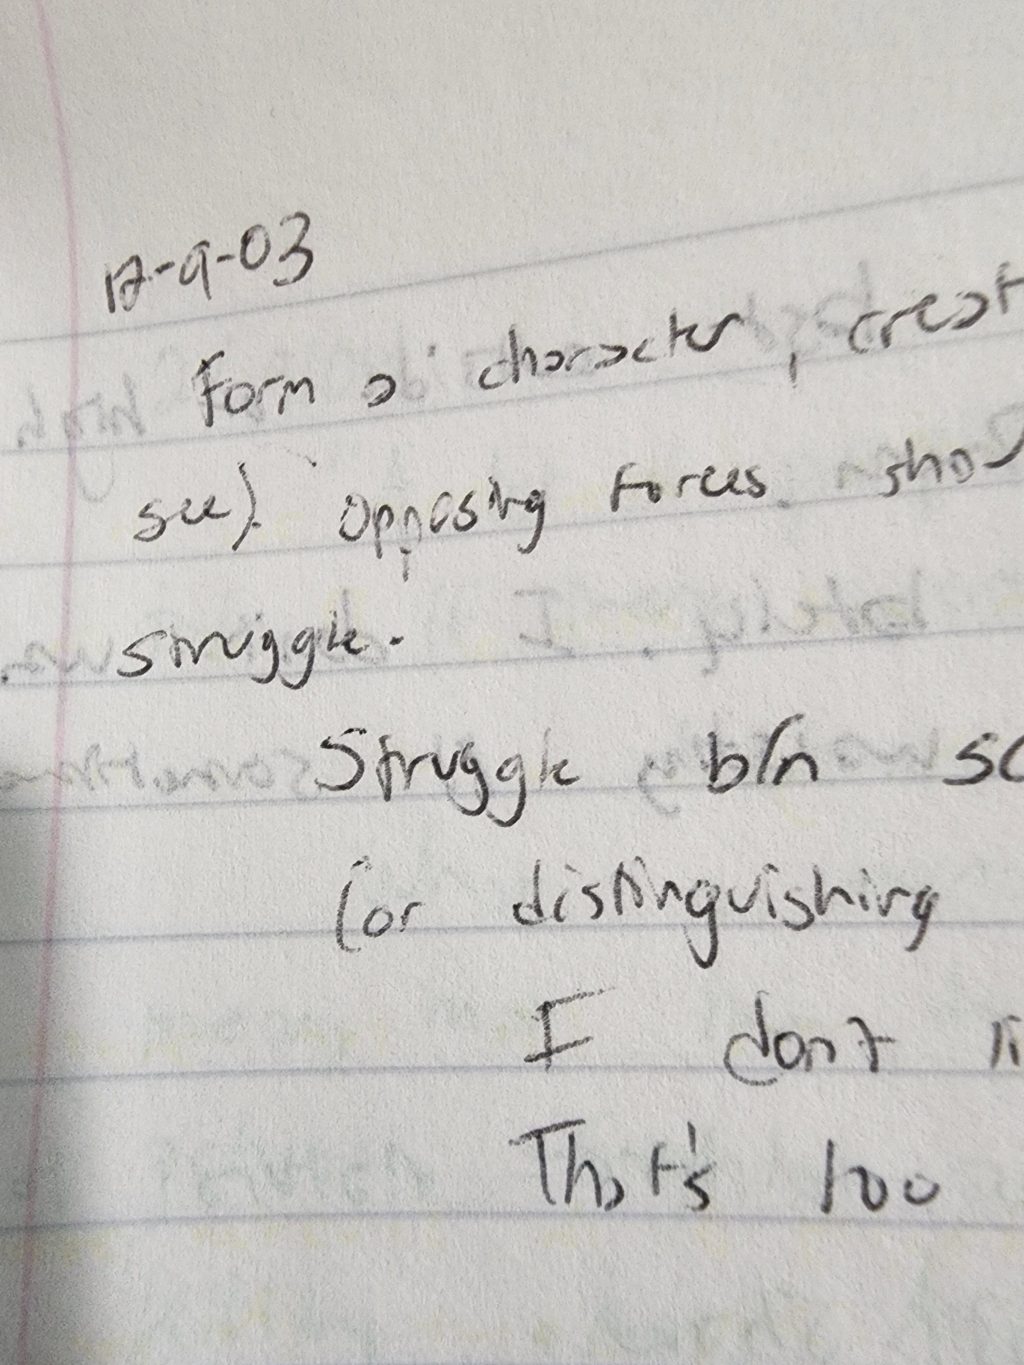 12-9-03
Form a character, creat
see). Opposing forces. sho
struggle.
Struggle b/n sc
(or distinguishing
I don't
That's 100